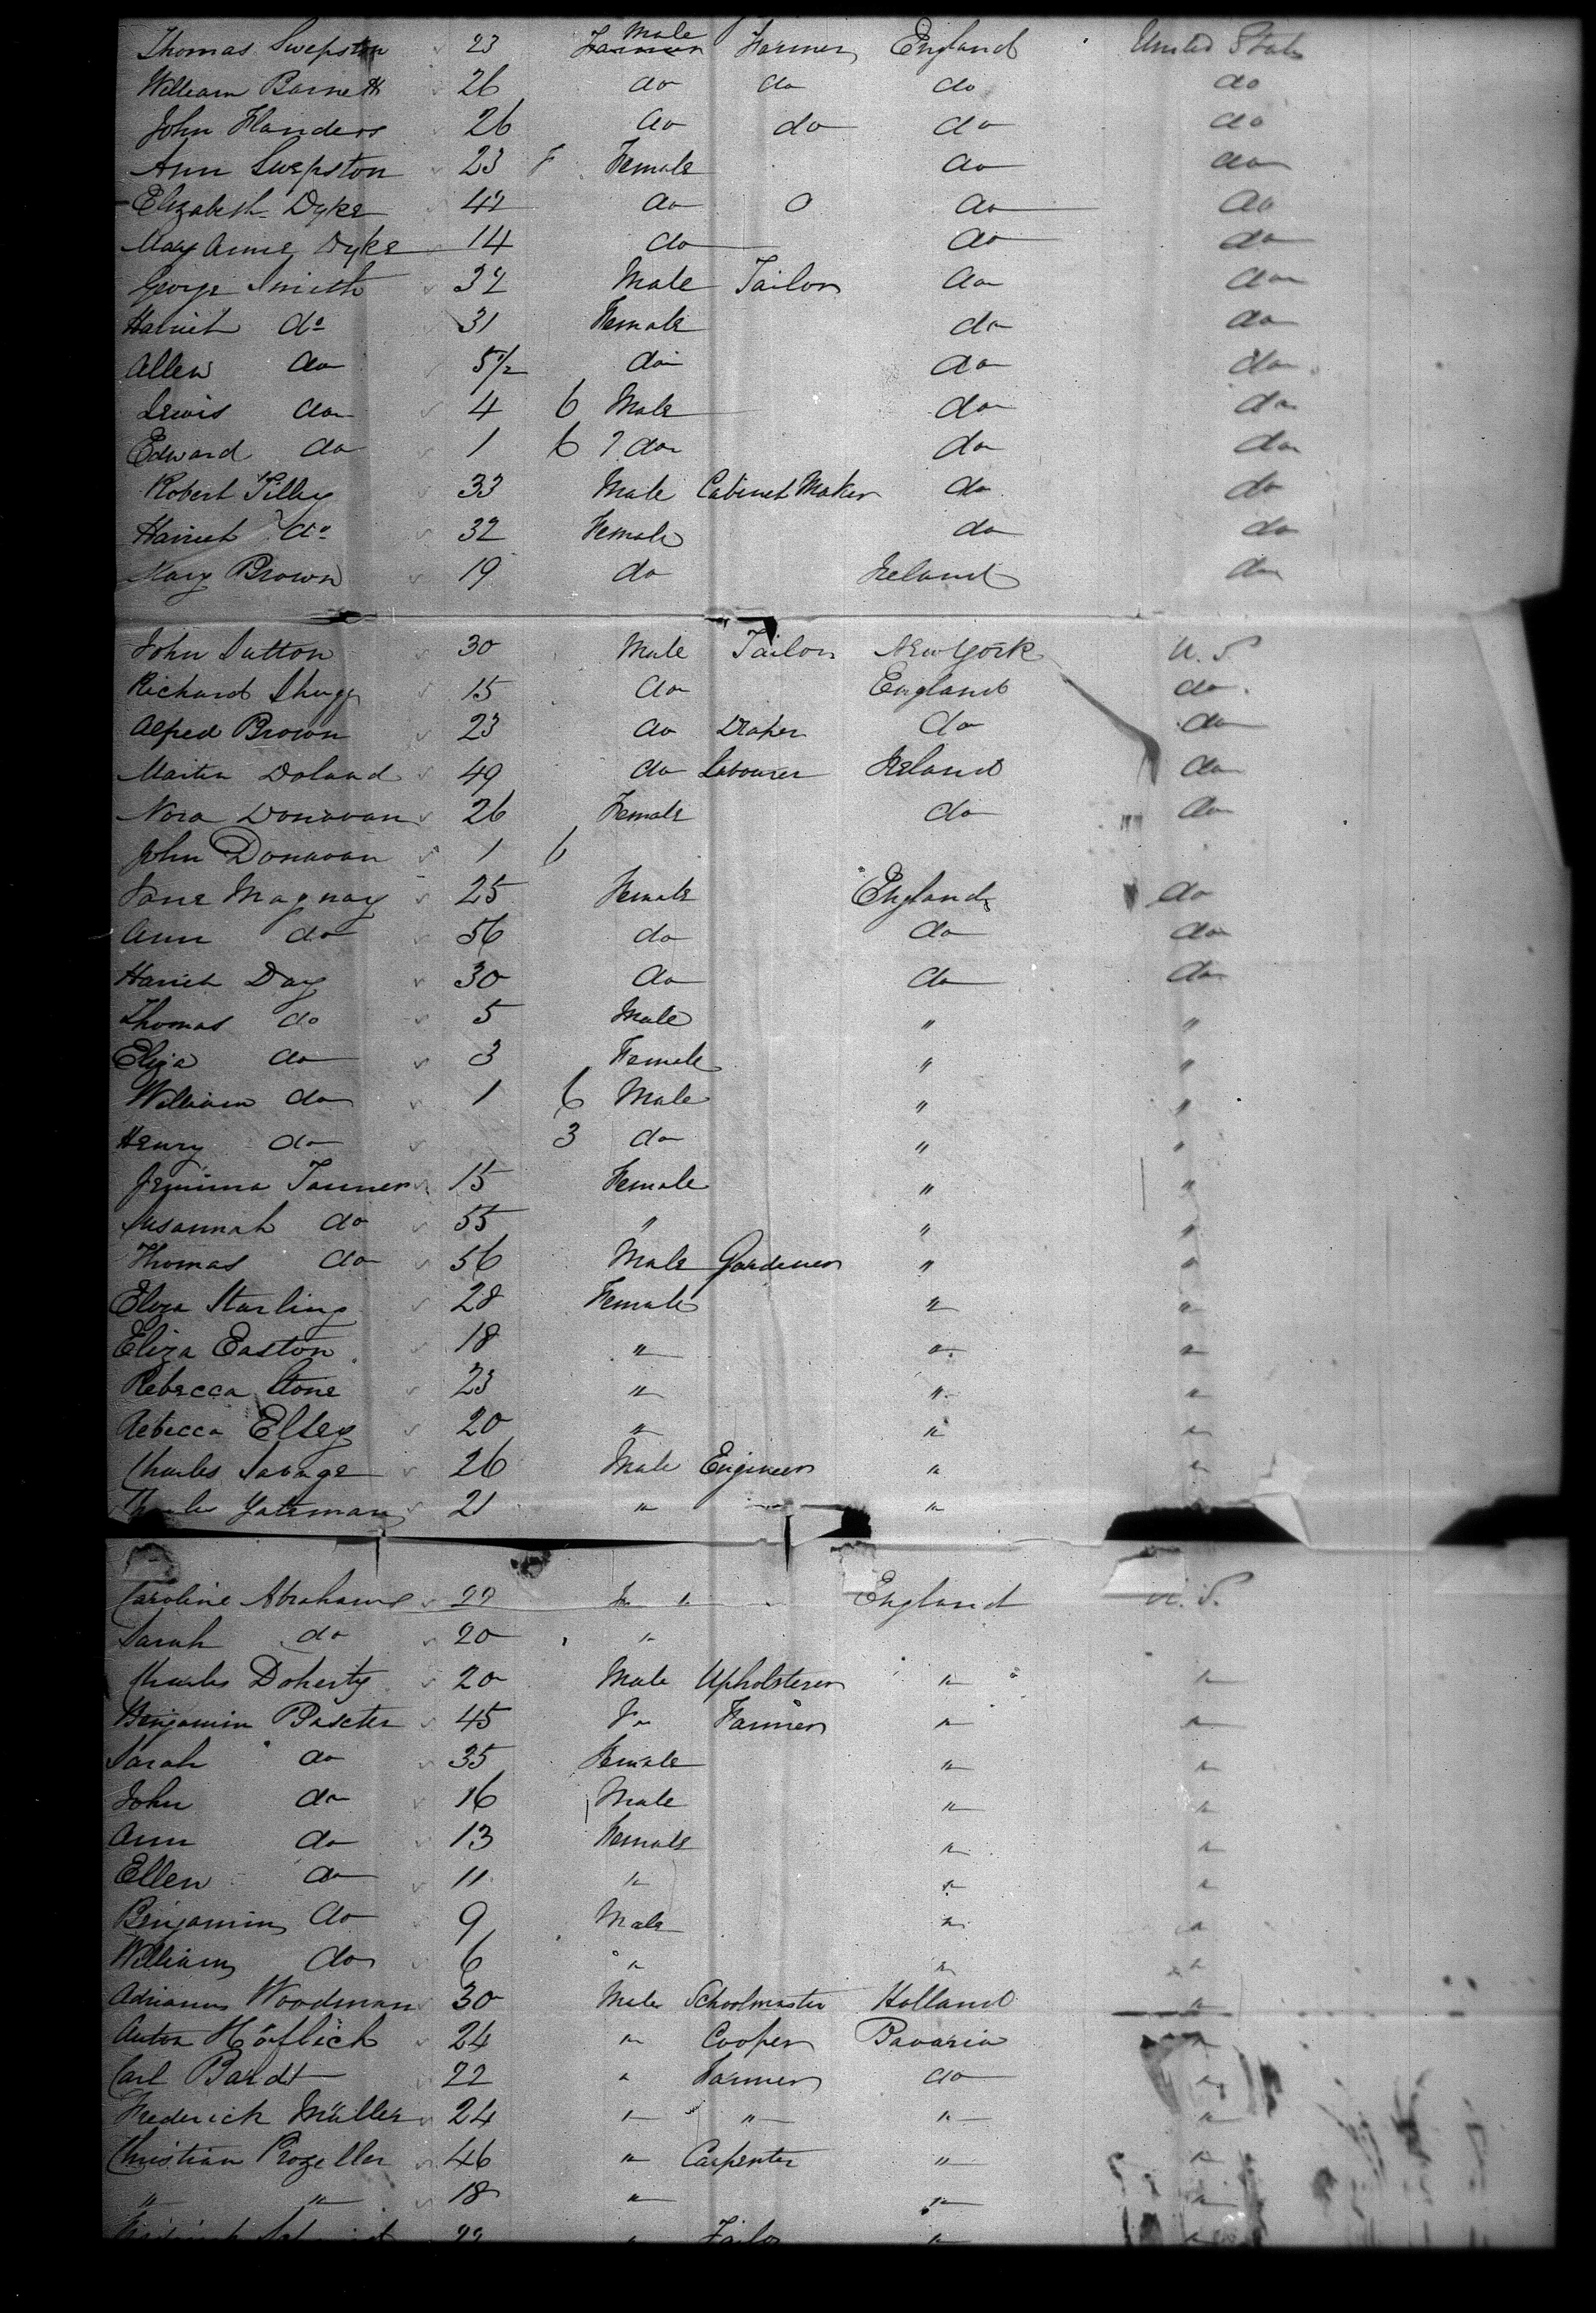 Thomas Swepston 23 Male Farmer England United States
William Barnett 26 do do do do
John Flanders 26 do do do do
Ann Swepston 23 F Female do do
Elizabeth Dyke 42 do 0 do do
Mary Anne Dyke 14 do do do
George Smith 32 Male Tailor do do
Harriet do 31 Female do do
Allen do 5 1/2 do do do
Lewis do 4 6 Male do do
Edward do 1 6 do do do
Robert Tilley 33 Male Cabinet Maker do do
Harriet do 32 Female do do
Mary Brown 19 do Ireland do
John Sutton 30 Male Tailor New York U. S.
Richard 15 do England do
Alfred Brown 23 do Draper do do
Martin Doland 49 do Labourer Ireland do
Nora Donavan 26 Female do do
John Donavan 1 6
Jane Magnay 25 Female England do
Ann do 56 do do do
Harriet Day 30 do do do
Thomas do 5 Male " "
Eliza do 3 Female " "
William do 1 6 Male " "
Henry do 3 do " "
Jemima Tanner 15 Female " "
Susannah do 55 " " "
Thomas do 56 Male Gardener " "
Eliza Starling 28 Female " "
Eliza Easton 18 " " "
Rebecca Stone 23 " " "
Rebecca Elsey 20 " " "
Charles Savage 26 Male Engineer " "
Yateman 21 " " "
Caroline Abrahams 22 " England U. S.
Sarah do 20 "
Charles Doherty 20 Male Upholsterer " "
Benjamin 45 Farmer " "
Sarah do 35 Female " "
John do 16 Male " "
Ann do 13 Female " "
Ellen do 11 " " "
Benjamin do 9 Male " "
William do 6 " " "
Adrianus Woodman 30 Male Schoolmaster Holland "
Anton Höflich 24 " Cooper Bavaria "
Carl Bardt 22 " Farmer do "
Frederick Müller 24 " " " "
Christian Rozeller 46 " Carpenter " "
" " 18 " " "
22 " Tailor " "